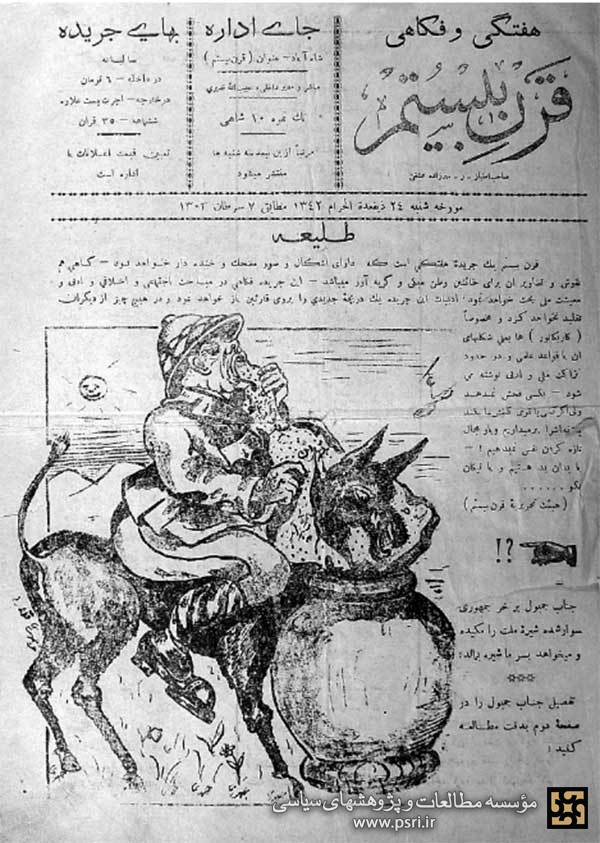 هفتگی و فکاهی
قرن بیستم
جای اداره
شاه آباد – عنوان (قرن بیستم)
تک نمره ۱۰ شاهی
منتشر میشود
بهای جریده
سالیانه
در داخله – ۶ تومان
در خارجه – اجرت پست علاوه
ششماهه – ۳۵ قران
تعیین قیمت اعلانات با
اداره است
مورخه شنبه ۲۴ ذیقعدة الحرام ۱۳۴۲ مطابق ۷ سرطان ۱۳۰۳
طلیعه
قرن بیستم یک جریدهٔ هفتگی است که دارای اشکال و صور مضحک و خنده دار خواهد بود – گاهی هم
نقوش و تصاویر آن برای خائنین وطن مهیب و گریه آور میباشد – این جریده فکاهی در مباحث اجتماعی و اخلاقی و ادبی و
معیشت ملی بحث خواهد نمود؛ ادبیات این جریده یک دریچهٔ جدیدی را بروی قارئین باز خواهد نمود و در هیچ چیز از دیگران
تقلید نخواهد کرد و خصوصاً
(کاریکاتور) ها یعنی شکلهای
آن با قواعد علمی و در حدود
نزاکت ملی و ادبی نوشته می
شود – بکسی فحش نمیدهد
تازه کردن نفس نمیدهیم! –
با بدان بد هستیم و با نیکان
نکو .....
(هیئت تحریریهٔ قرن بیستم)
!؟
جناب جمبول بر خر جمهوری
سوار شده شیرهٔ ملت را مکیده
و میخواهد بسر ما شیره بمالد:
***
تفصیل جناب جمبول را در
صفحهٔ دوم بدقت مطالعه
کنید:
مؤسسه مطالعات و پژوهشهای سیاسی
www.psri.ir